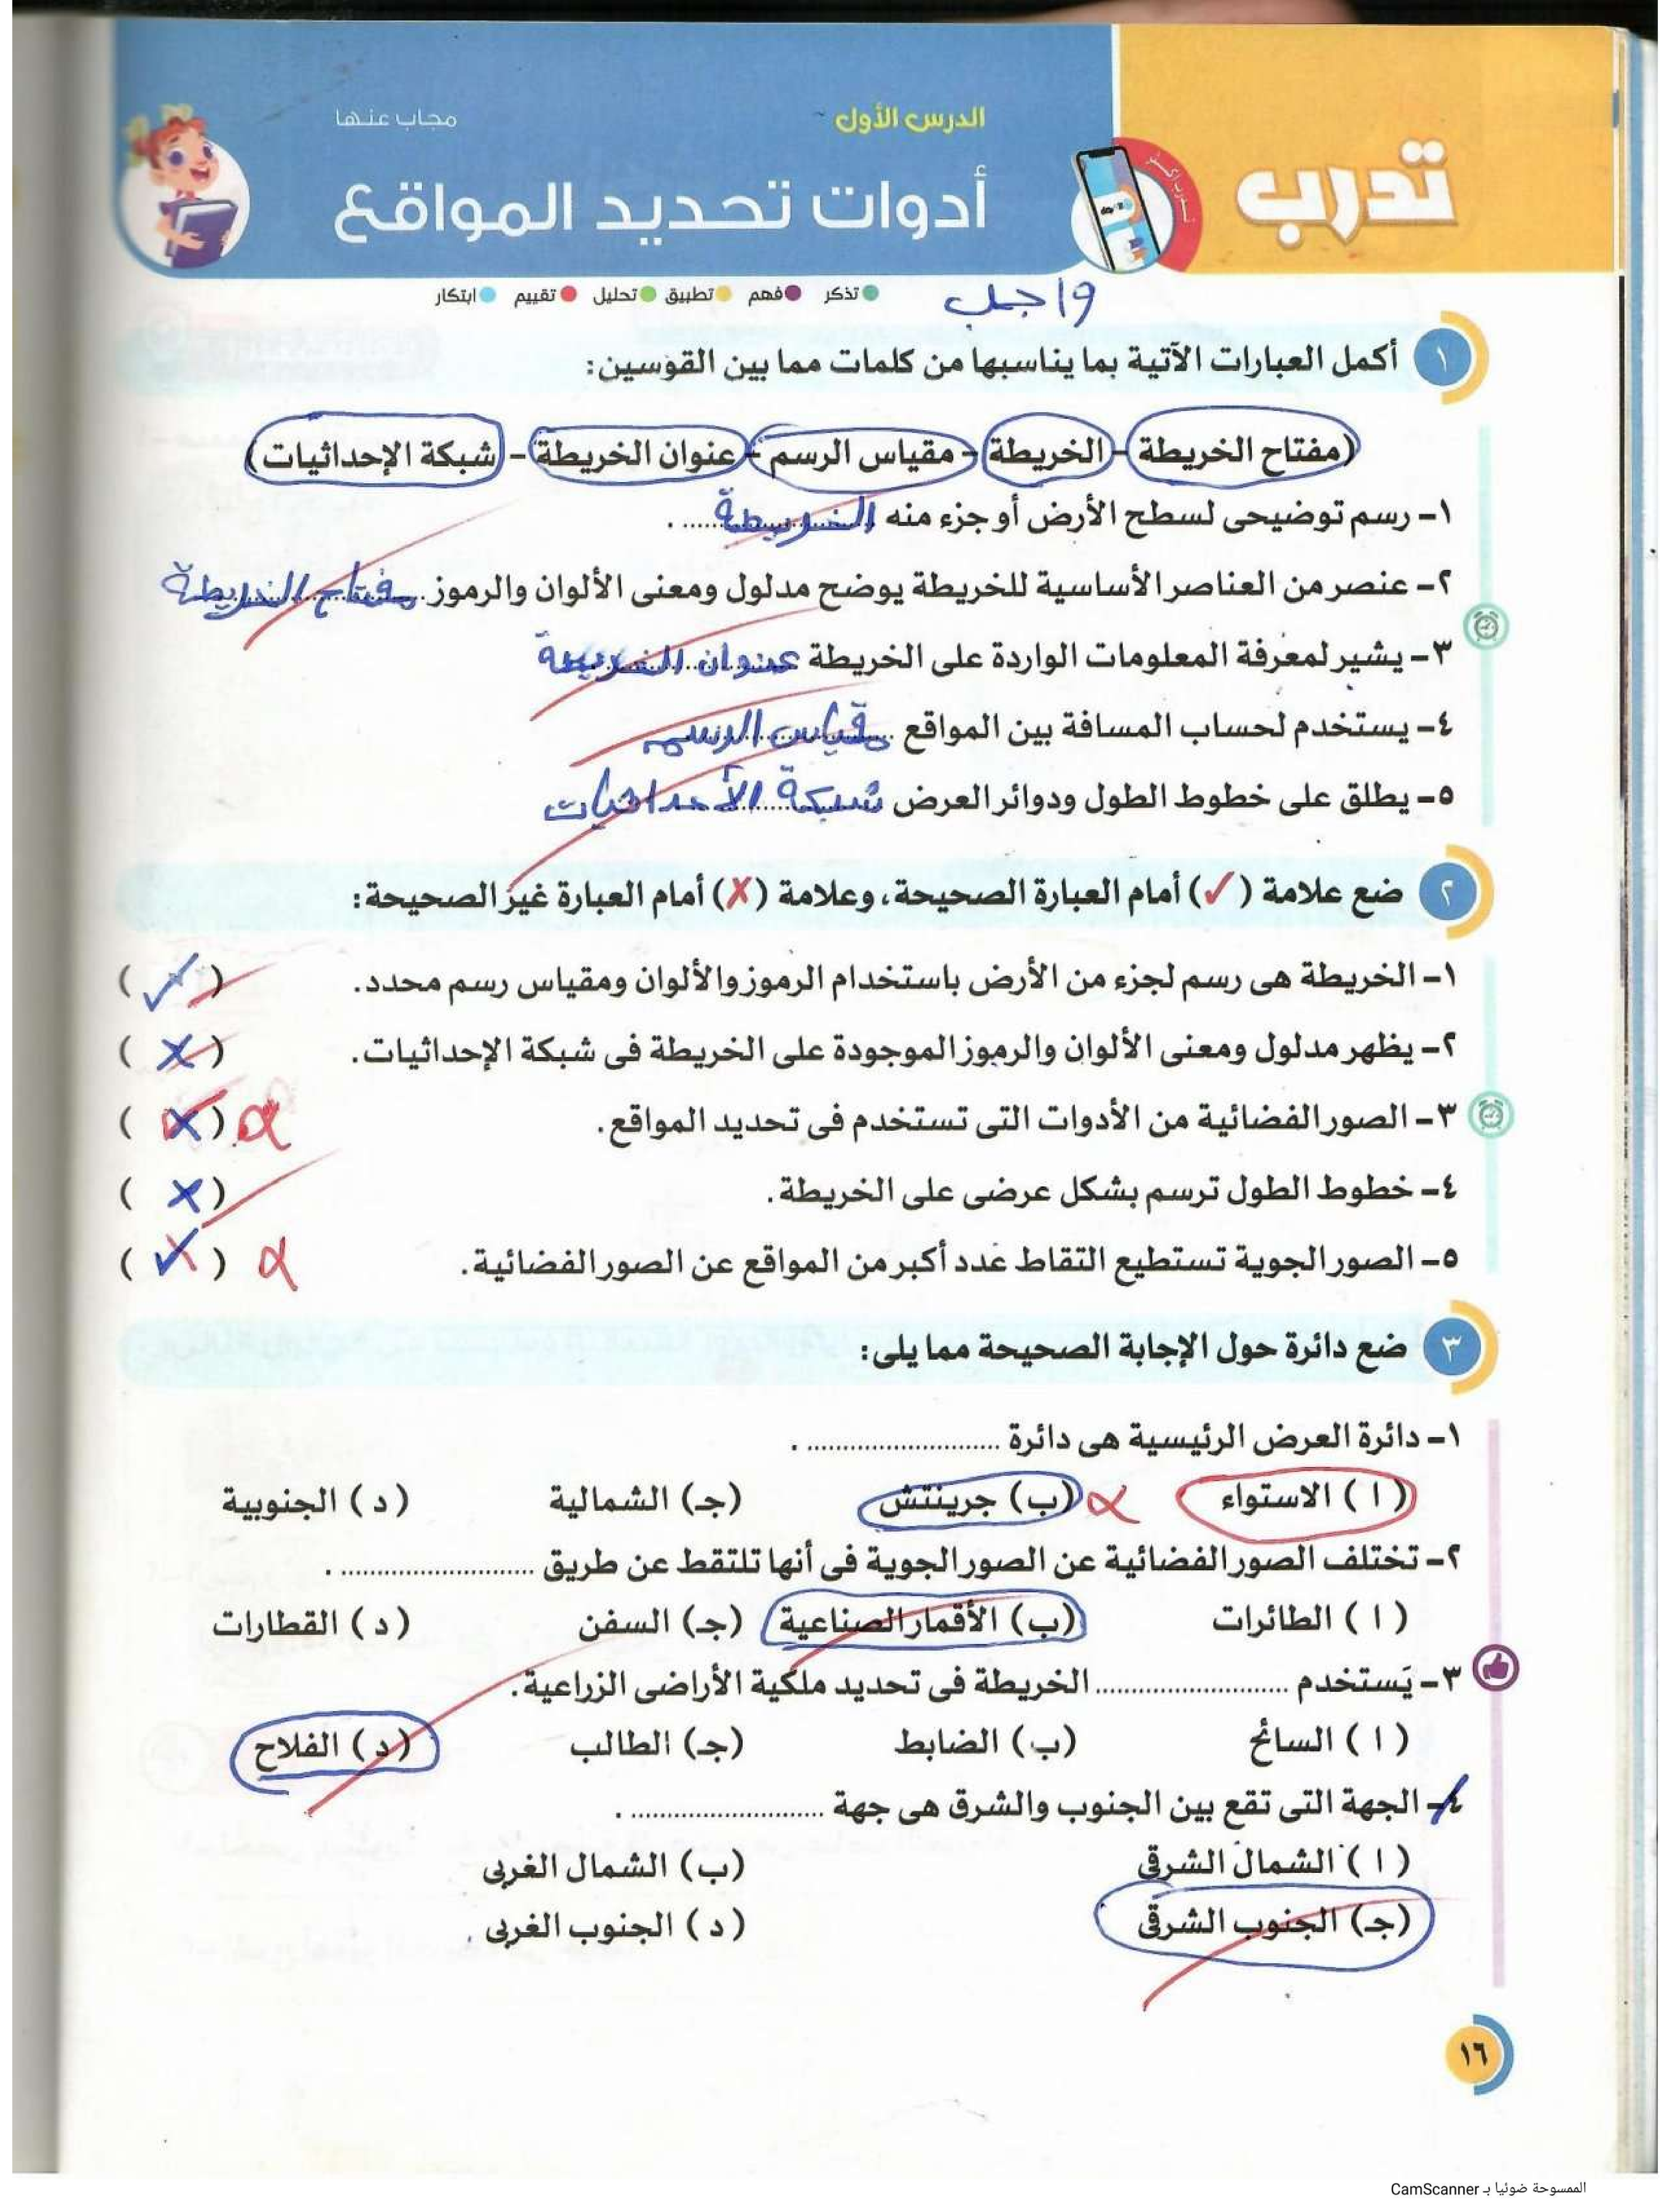 تدرب
الدرس الأول
مجاب عنها
أدوات تحديد المواقع
تذكر فهم تطبيق تحليل تقييم ابتكار
واجب
١ أكمل العبارات الآتية بما يناسبها من كلمات مما بين القوسين:
(مفتاح الخريطة - الخريطة - مقياس الرسم - عنوان الخريطة - شبكة الإحداثيات)
١- رسم توضيحى لسطح الأرض أو جزء منه الخريطة .
٢- عنصر من العناصر الأساسية للخريطة يوضح مدلول ومعنى الألوان والرموز مفتاح الخريطة
٣- يشير لمعرفة المعلومات الواردة على الخريطة عنوان الخريطة
٤- يستخدم لحساب المسافة بين المواقع مقياس الرسم
٥- يطلق على خطوط الطول ودوائر العرض شبكة الأحداثيات
٢ ضع علامة (✓) أمام العبارة الصحيحة، وعلامة (✗) أمام العبارة غير الصحيحة:
١- الخريطة هى رسم لجزء من الأرض باستخدام الرموز والألوان ومقياس رسم محدد. (✓)
٢- يظهر مدلول ومعنى الألوان والرموز الموجودة على الخريطة فى شبكة الإحداثيات. (✗)
٣- الصور الفضائية من الأدوات التى تستخدم فى تحديد المواقع. (✗)
٤- خطوط الطول ترسم بشكل عرضى على الخريطة. (✗)
٥- الصور الجوية تستطيع التقاط عدد أكبر من المواقع عن الصور الفضائية. (✓)
٣ ضع دائرة حول الإجابة الصحيحة مما يلى:
١- دائرة العرض الرئيسية هى دائرة .......................... .
(ا) الاستواء (ب) جرينتش (جـ) الشمالية (د) الجنوبية
٢- تختلف الصور الفضائية عن الصور الجوية فى أنها تلتقط عن طريق .......................... .
(ا) الطائرات (ب) الأقمار الصناعية (جـ) السفن (د) القطارات
٣- يَستخدم .......................... الخريطة فى تحديد ملكية الأراضى الزراعية.
(ا) السائح (ب) الضابط (جـ) الطالب (د) الفلاح
٤- الجهة التى تقع بين الجنوب والشرق هى جهة .......................... .
(ا) الشمال الشرقى (ب) الشمال الغربى
(جـ) الجنوب الشرقى (د) الجنوب الغربى
١٦
الممسوحة ضوئيا بـ CamScanner